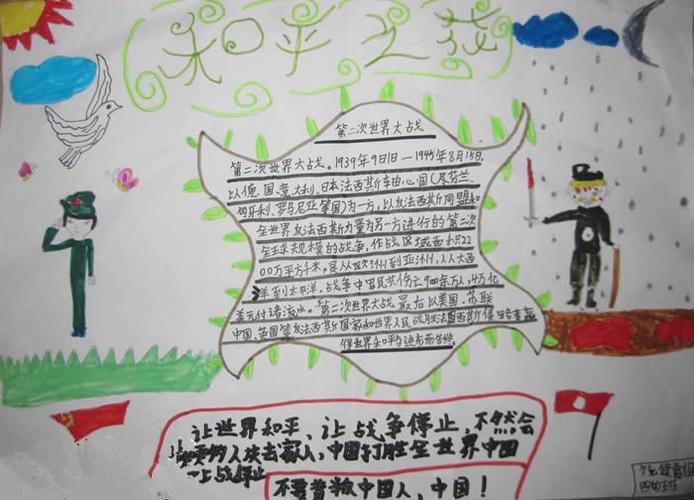 和平之花
第二次世界大战
第二次世界大战。1939年9月1日—1945年8月15日.
以德国意大利、日本法西斯轴心国(及芬兰.
匈牙利、罗马尼亚等国)为一方，以反法西斯同盟和
全世界反法西斯力量为另一方进行的第二次
全球规模的战争，作战区域面积22
00万平方千米，是从欧洲到亚洲，从大西
洋到太平洋，战争中军民共伤亡9000余万人，4万亿
美元付诸流水。第二次世界大战最后以美国、苏联
中国、英国等反法西斯国家和世界人民战胜法西斯侵略者赢
得世界和平与进步而告终.
让世界和平、让战争停止，不然会
的人失去家人，中国打胜全世界中国
一上战停止
不要
中国人，中国！